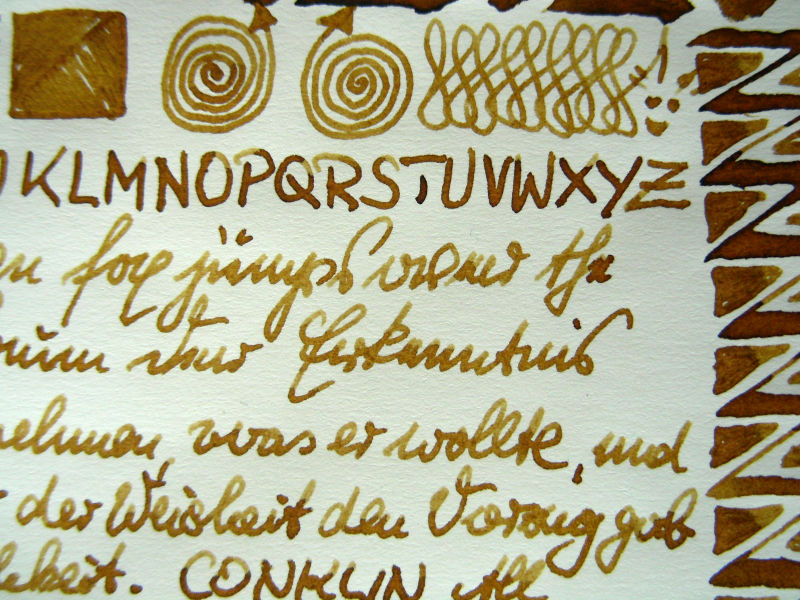 KLMNOPQRSTUVWXYZ
fox jumps over the
der Erkenntnis
nehmen, was er wollte, und
der Weisheit den Vorzug gab
CONKLIN